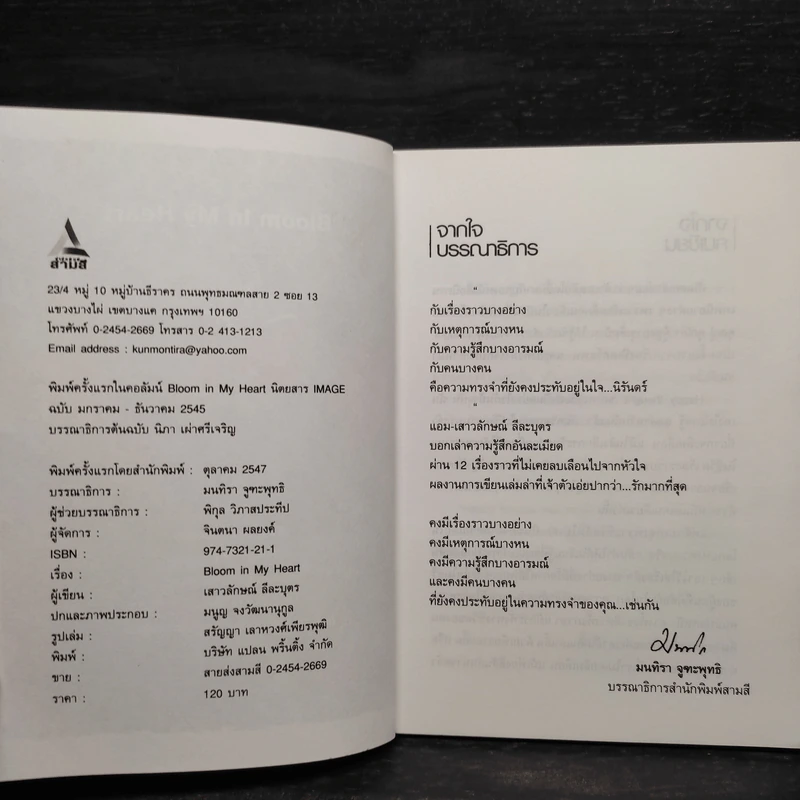 สามสี
23/4 หมู่ 10 หมู่บ้านธีราคร ถนนพุทธมณฑลสาย 2 ซอย 13
แขวงบางไผ่ เขตบางแค กรุงเทพฯ 10160
โทรศัพท์ 0-2454-2669 โทรสาร 0-2 413-1213
Email address : kunmontira@yahoo.com
พิมพ์ครั้งแรกในคอลัมน์ Bloom in My Heart นิตยสาร IMAGE
ฉบับ มกราคม - ธันวาคม 2545
บรรณาธิการต้นฉบับ นิภา เผ่าศรีเจริญ
พิมพ์ครั้งแรกโดยสำนักพิมพ์ : ตุลาคม 2547
บรรณาธิการ : มนทิรา จูฑะพุทธิ
ผู้ช่วยบรรณาธิการ : พิกุล วิภาสประทีป
ผู้จัดการ : จินตนา ผลยงค์
ISBN : 974-7321-21-1
เรื่อง : Bloom in My Heart
ผู้เขียน : เสาวลักษณ์ ลีละบุตร
ปกและภาพประกอบ : มนูญ จงวัฒนานุกูล
รูปเล่ม : สรัญญา เลาหวงศ์เพียรพุฒิ
พิมพ์ : บริษัท แปลน พริ้นติ้ง จำกัด
ขาย : สายส่งสามสี 0-2454-2669
ราคา : 120 บาท
จากใจ
บรรณาธิการ
"
กับเรื่องราวบางอย่าง
กับเหตุการณ์บางหน
กับความรู้สึกบางอารมณ์
กับคนบางคน
คือความทรงจำที่ยังคงประทับอยู่ในใจ...นิรันดร์
"
แอม-เสาวลักษณ์ ลีละบุตร
บอกเล่าความรู้สึกอันละเมียด
ผ่าน 12 เรื่องราวที่ไม่เคยลบเลือนไปจากหัวใจ
ผลงานการเขียนเล่มล่าที่เจ้าตัวเอ่ยปากว่า...รักมากที่สุด
คงมีเรื่องราวบางอย่าง
คงมีเหตุการณ์บางหน
คงมีความรู้สึกบางอารมณ์
และคงมีคนบางคน
ที่ยังคงประทับอยู่ในความทรงจำของคุณ...เช่นกัน
มนทิรา จูฑะพุทธิ
บรรณาธิการสำนักพิมพ์สามสี